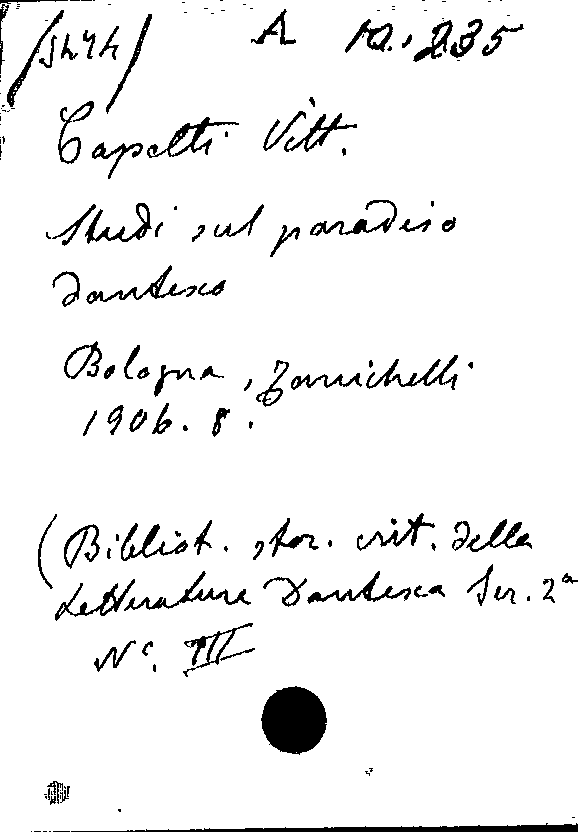 A 10.235
Capelli Vitt.
Studi sul paradiso
dantesco
Bologna, Zanichelli
1906. 8.
(Bibliot. stor. crit. della
Letteratura Dantesca Ser. 2a
No. III